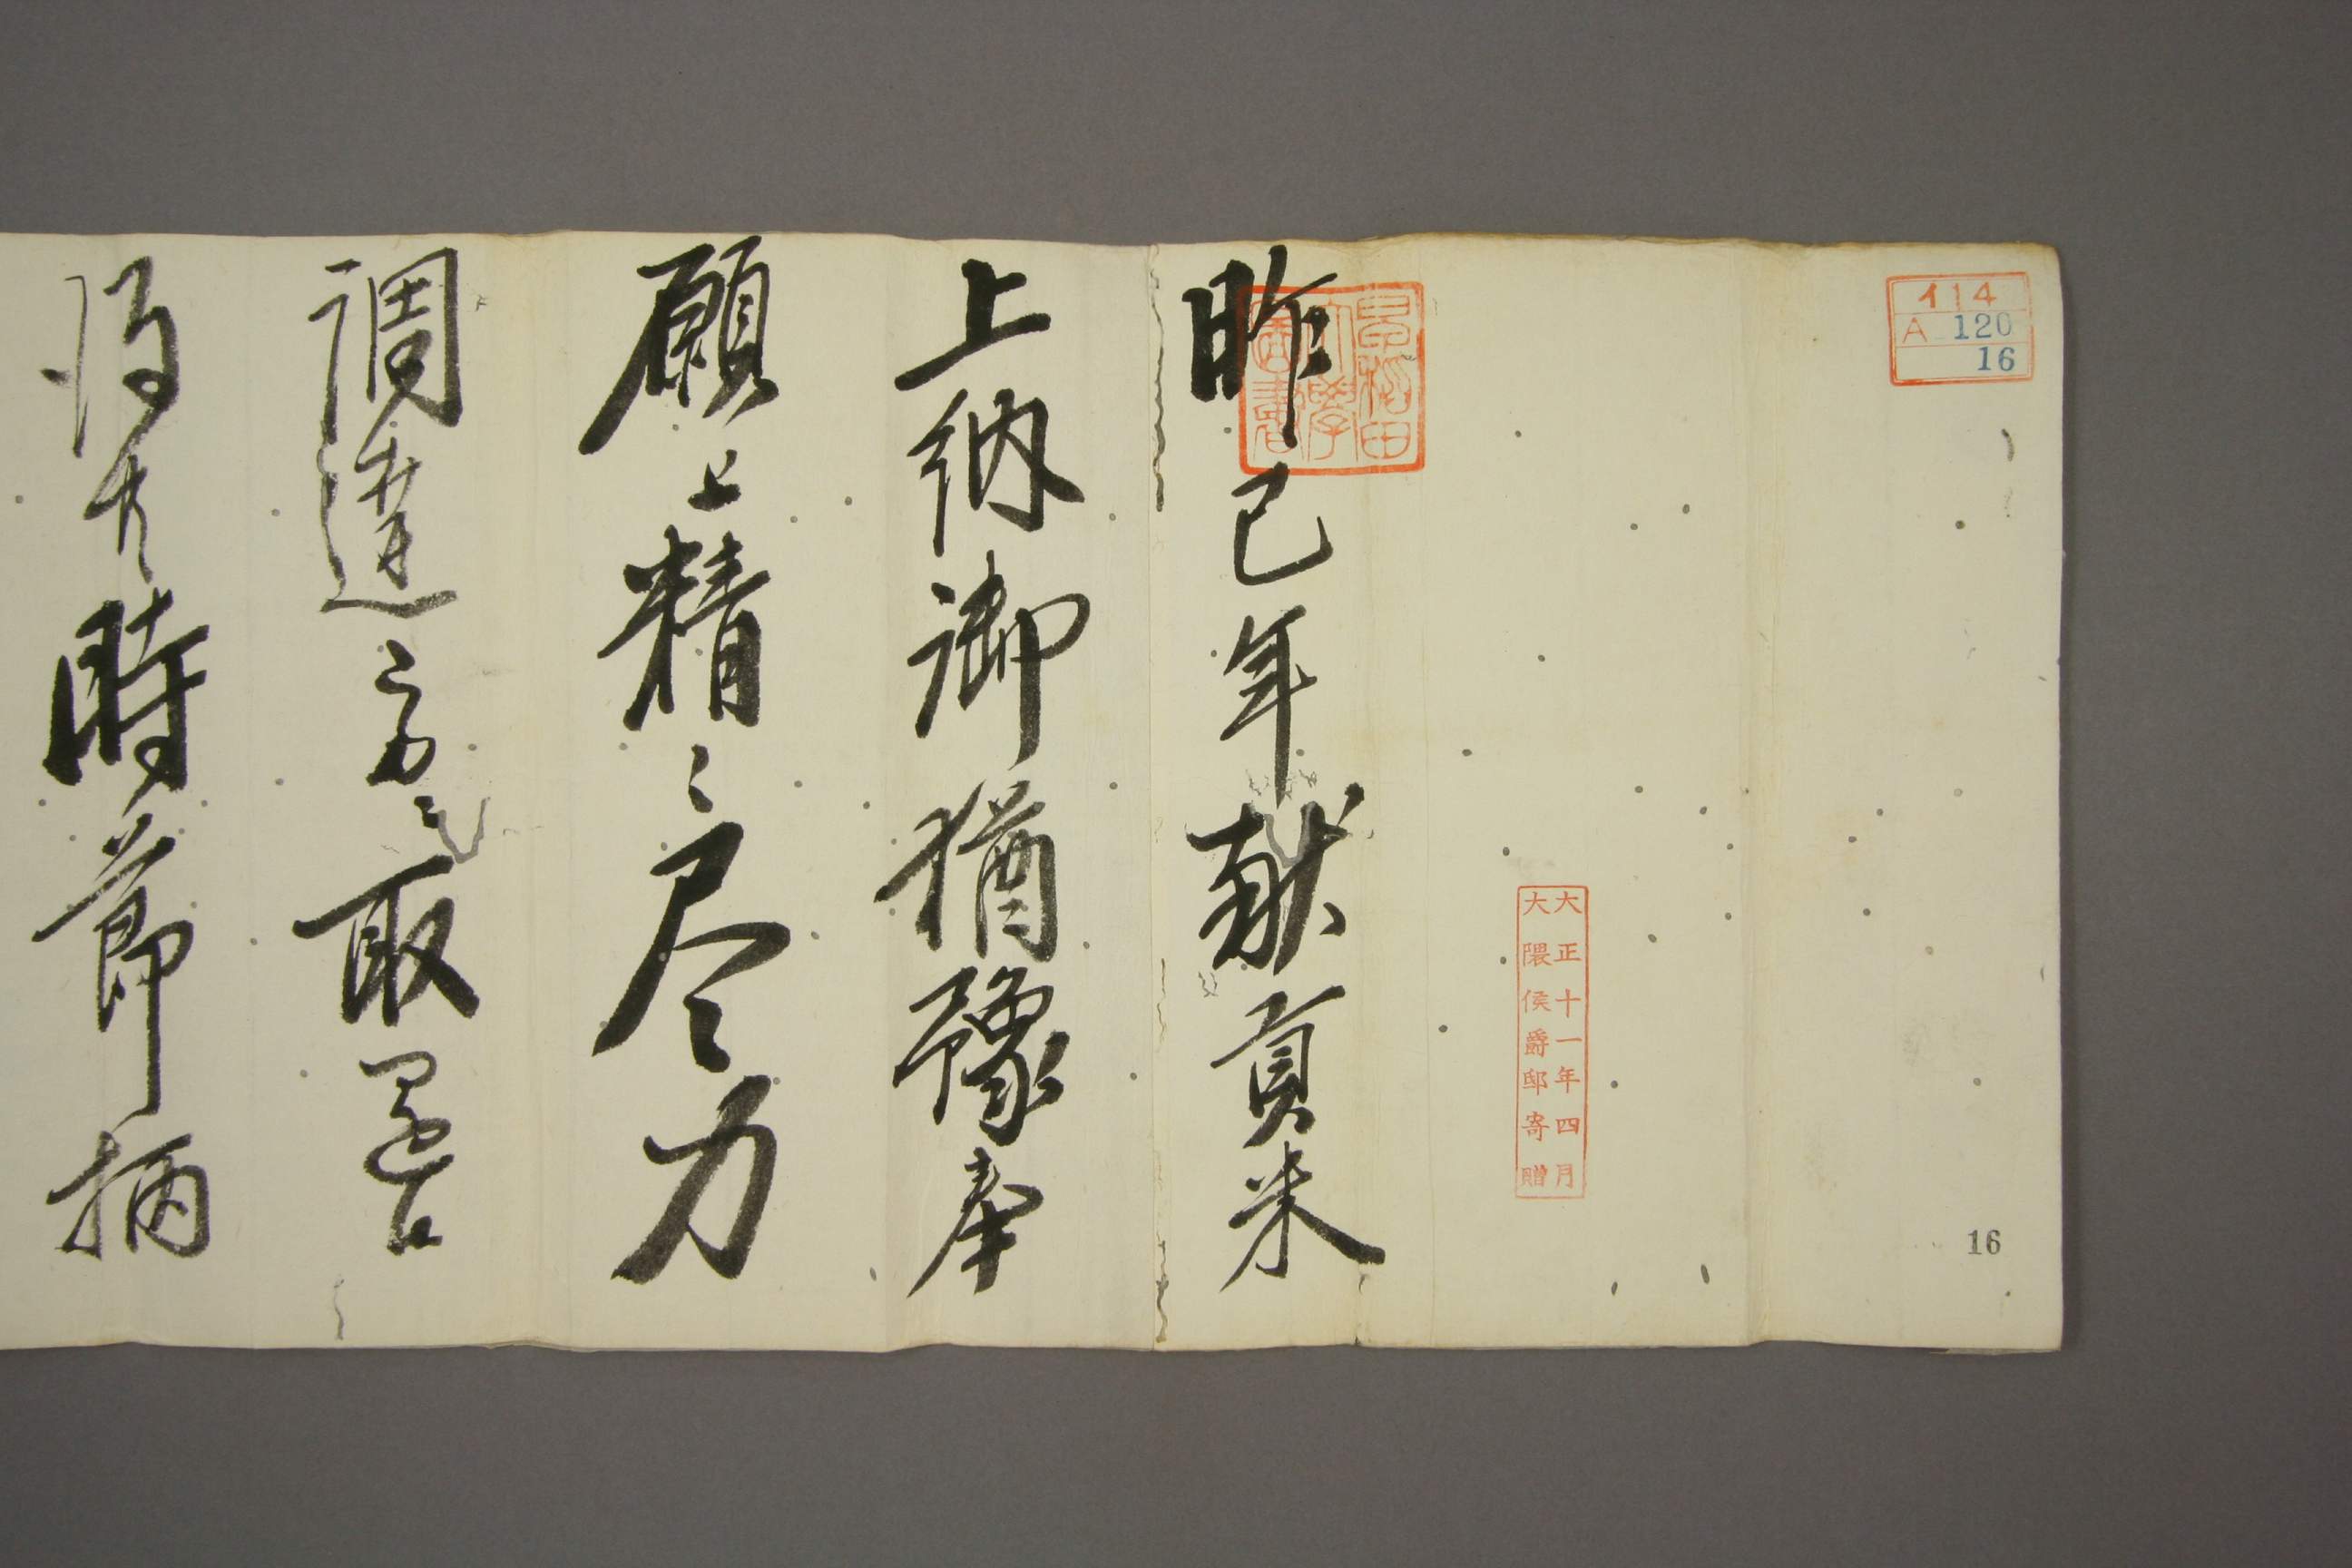 イ14
A 120
16
早稲田
大學
圖書
大正十一年四月
大隈侯爵邸寄贈
16
昨巳年献貢米
上納御猶豫奉
願上精々尽力
調達取
得共時節柄